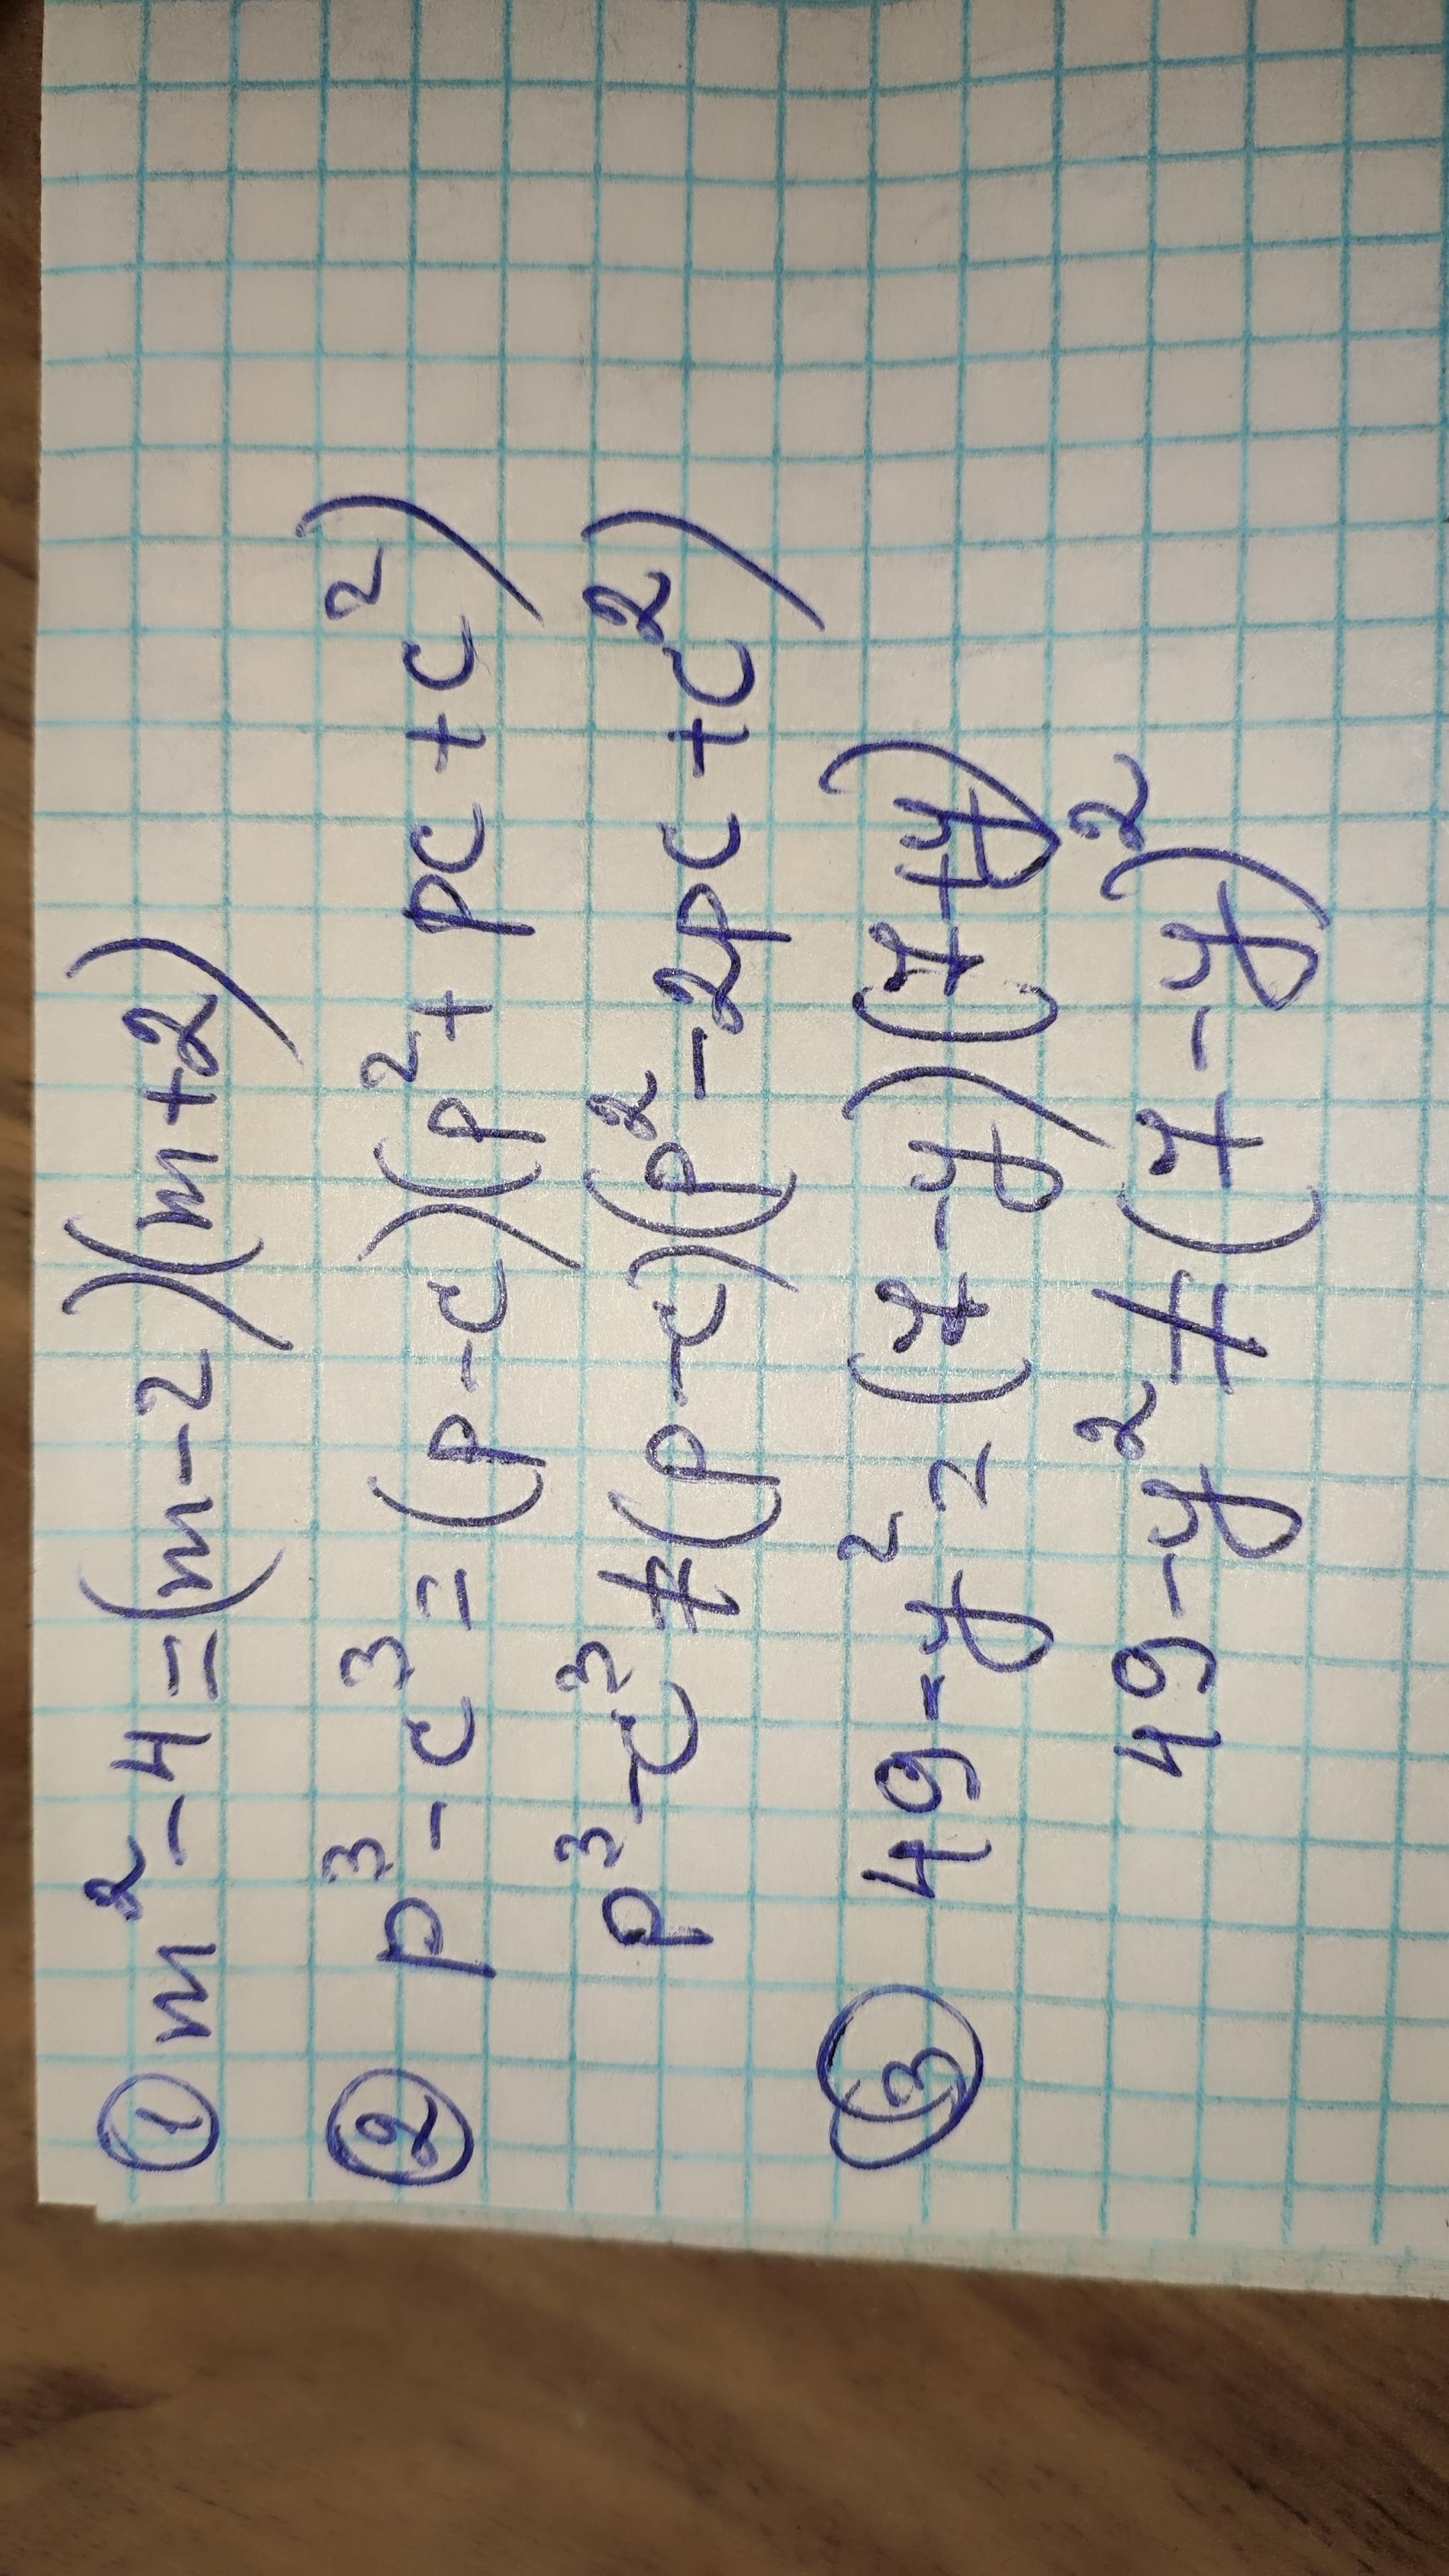 ① m² - 4 = (m - 2)(m + 2)
② p³ - c³ = (p - c)(p² + pc + c²)
p³ - c³ ≠ (p - c)(p² - 2pc + c²)
③ 49 - y² = (7 - y)(7 + y)
49 - y² ≠ (7 - y)²